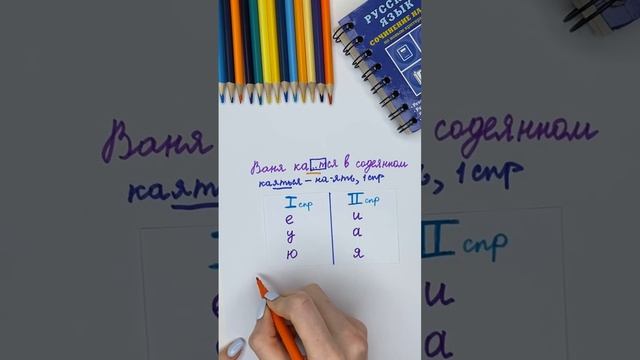 РУССКИЙ
ЯЗЫК
СОЧИНЕНИЕ НА
Ваня ка..тся в содеянном
каяться – на -ять, 1 спр
I спр II спр
е и
у а
ю я